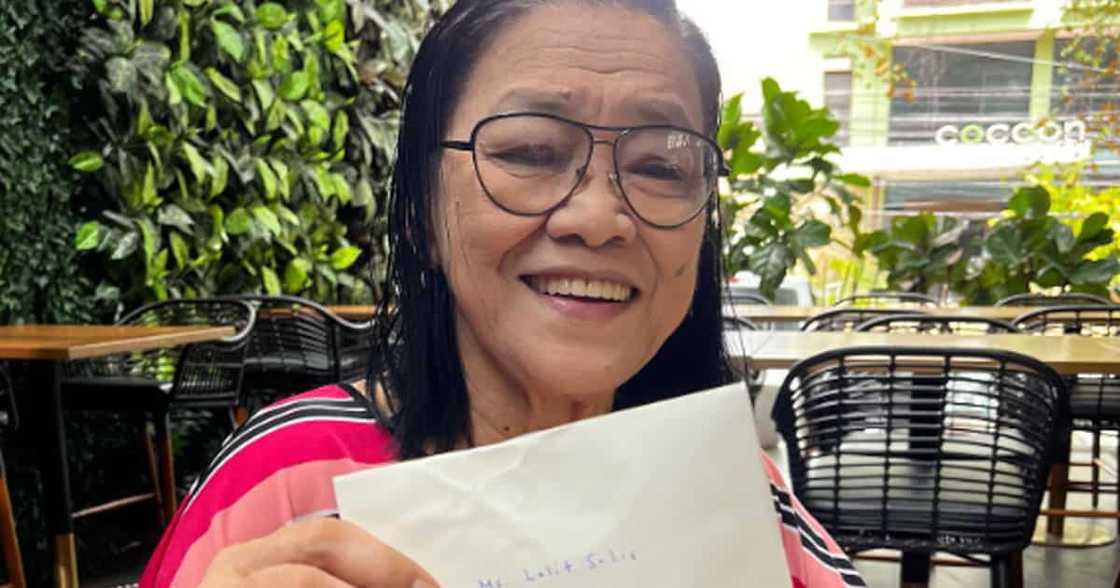 coccoon
Ms. Lolit Solis